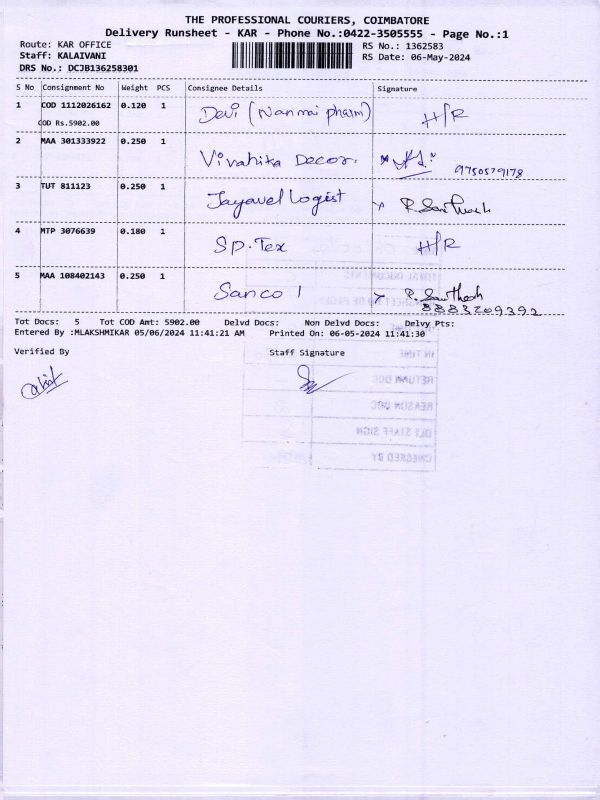 THE PROFESSIONAL COURIERS, COIMBATORE
Delivery Runsheet - KAR - Phone No.:0422-3505555 - Page No.:1
Route: KAR OFFICE RS No.: 1362583
Staff: KALAIVANI RS Date: 06-May-2024
DRS No.: DCJB136258301
S No Consignment No Weight PCS Consignee Details Signature
1 COD 1112026162 0.120 1 Devi (Nanmai pharm) H/R
COD Rs.5902.00
2 MAA 301333922 0.250 1 Vivahika Decor. 9750579178
3 TUT 811123 0.250 1 Jayavel Logist P. Santhosh
4 MTP 3076639 0.180 1 SP.Tex H/R
5 MAA 108402143 0.250 1 Sanco 1 P. Santhosh
8883209392
Tot Docs: 5 Tot COD Amt: 5902.00 Delvd Docs: Non Delvd Docs: Delvy Pts:
Entered By :MLAKSHMIKAR 05/06/2024 11:41:21 AM Printed On: 06-05-2024 11:41:30
Verified By Staff Signature
IN TIME
RETURN DOC
REASON DOC
DLY STAFF SIGN
CHECKED BY